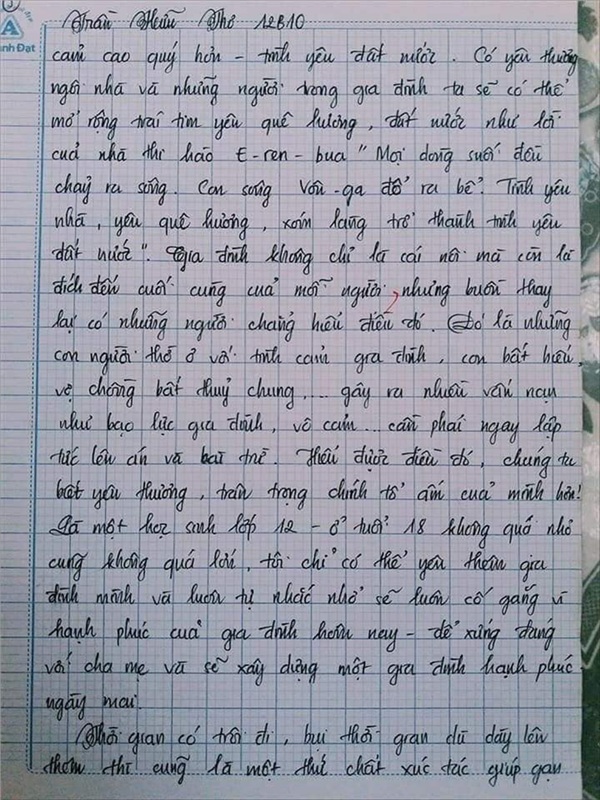 A
anh Đạt
Trần Hữu Thơ 12B10
cảm cao quý hơn – tình yêu đất nước. Có yêu thương
ngôi nhà và những người trong gia đình ta sẽ có thể
mở rộng trái tim yêu quê hương, đất nước như lời
của nhà thi hào E-ren-bua "Mọi dòng suối đều
chảy ra sông. Con sông Vôn-ga đổ ra bể. Tình yêu
nhà, yêu quê hương, xóm làng trở thành tình yêu
đất nước". Gia đình không chỉ là cái nôi mà còn là
đích đến cuối cùng của mỗi người, nhưng buồn thay
lại có những người chẳng hiểu điều đó. Đó là những
con người thờ ơ với tình cảm gia đình, con bất hiếu,
vợ chồng bất thuỷ chung.... gây ra nhiều vấn nạn
như bạo lực gia đình, vô cảm... cần phải ngay lập
tức lên án và bài trừ. Hiểu được điều đó, chúng ta
biết yêu thương, trân trọng chính tổ ấm của mình hơn!
Là một học sinh lớp 12 – ở tuổi 18 không quá nhỏ
cũng không quá lớn, tôi chỉ có thể yêu thêm gia
đình mình và luôn tự nhắc nhở sẽ luôn cố gắng vì
hạnh phúc của gia đình hôm nay – để xứng đáng
với cha mẹ và sẽ xây dựng một gia đình hạnh phúc
ngày mai.
Thời gian có trôi đi, bụi thời gian dù dày lên
thêm thì cũng là một thứ chất xúc tác giúp gạn